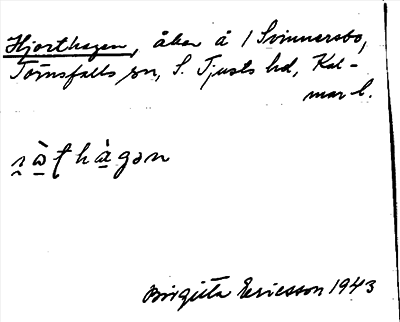 Hjorthagen, åker å 1 Svinnersbo,
Törnsfalls sn, S. Tjusts hd, Kal-
mar l.
Birgitta Ericsson 1943